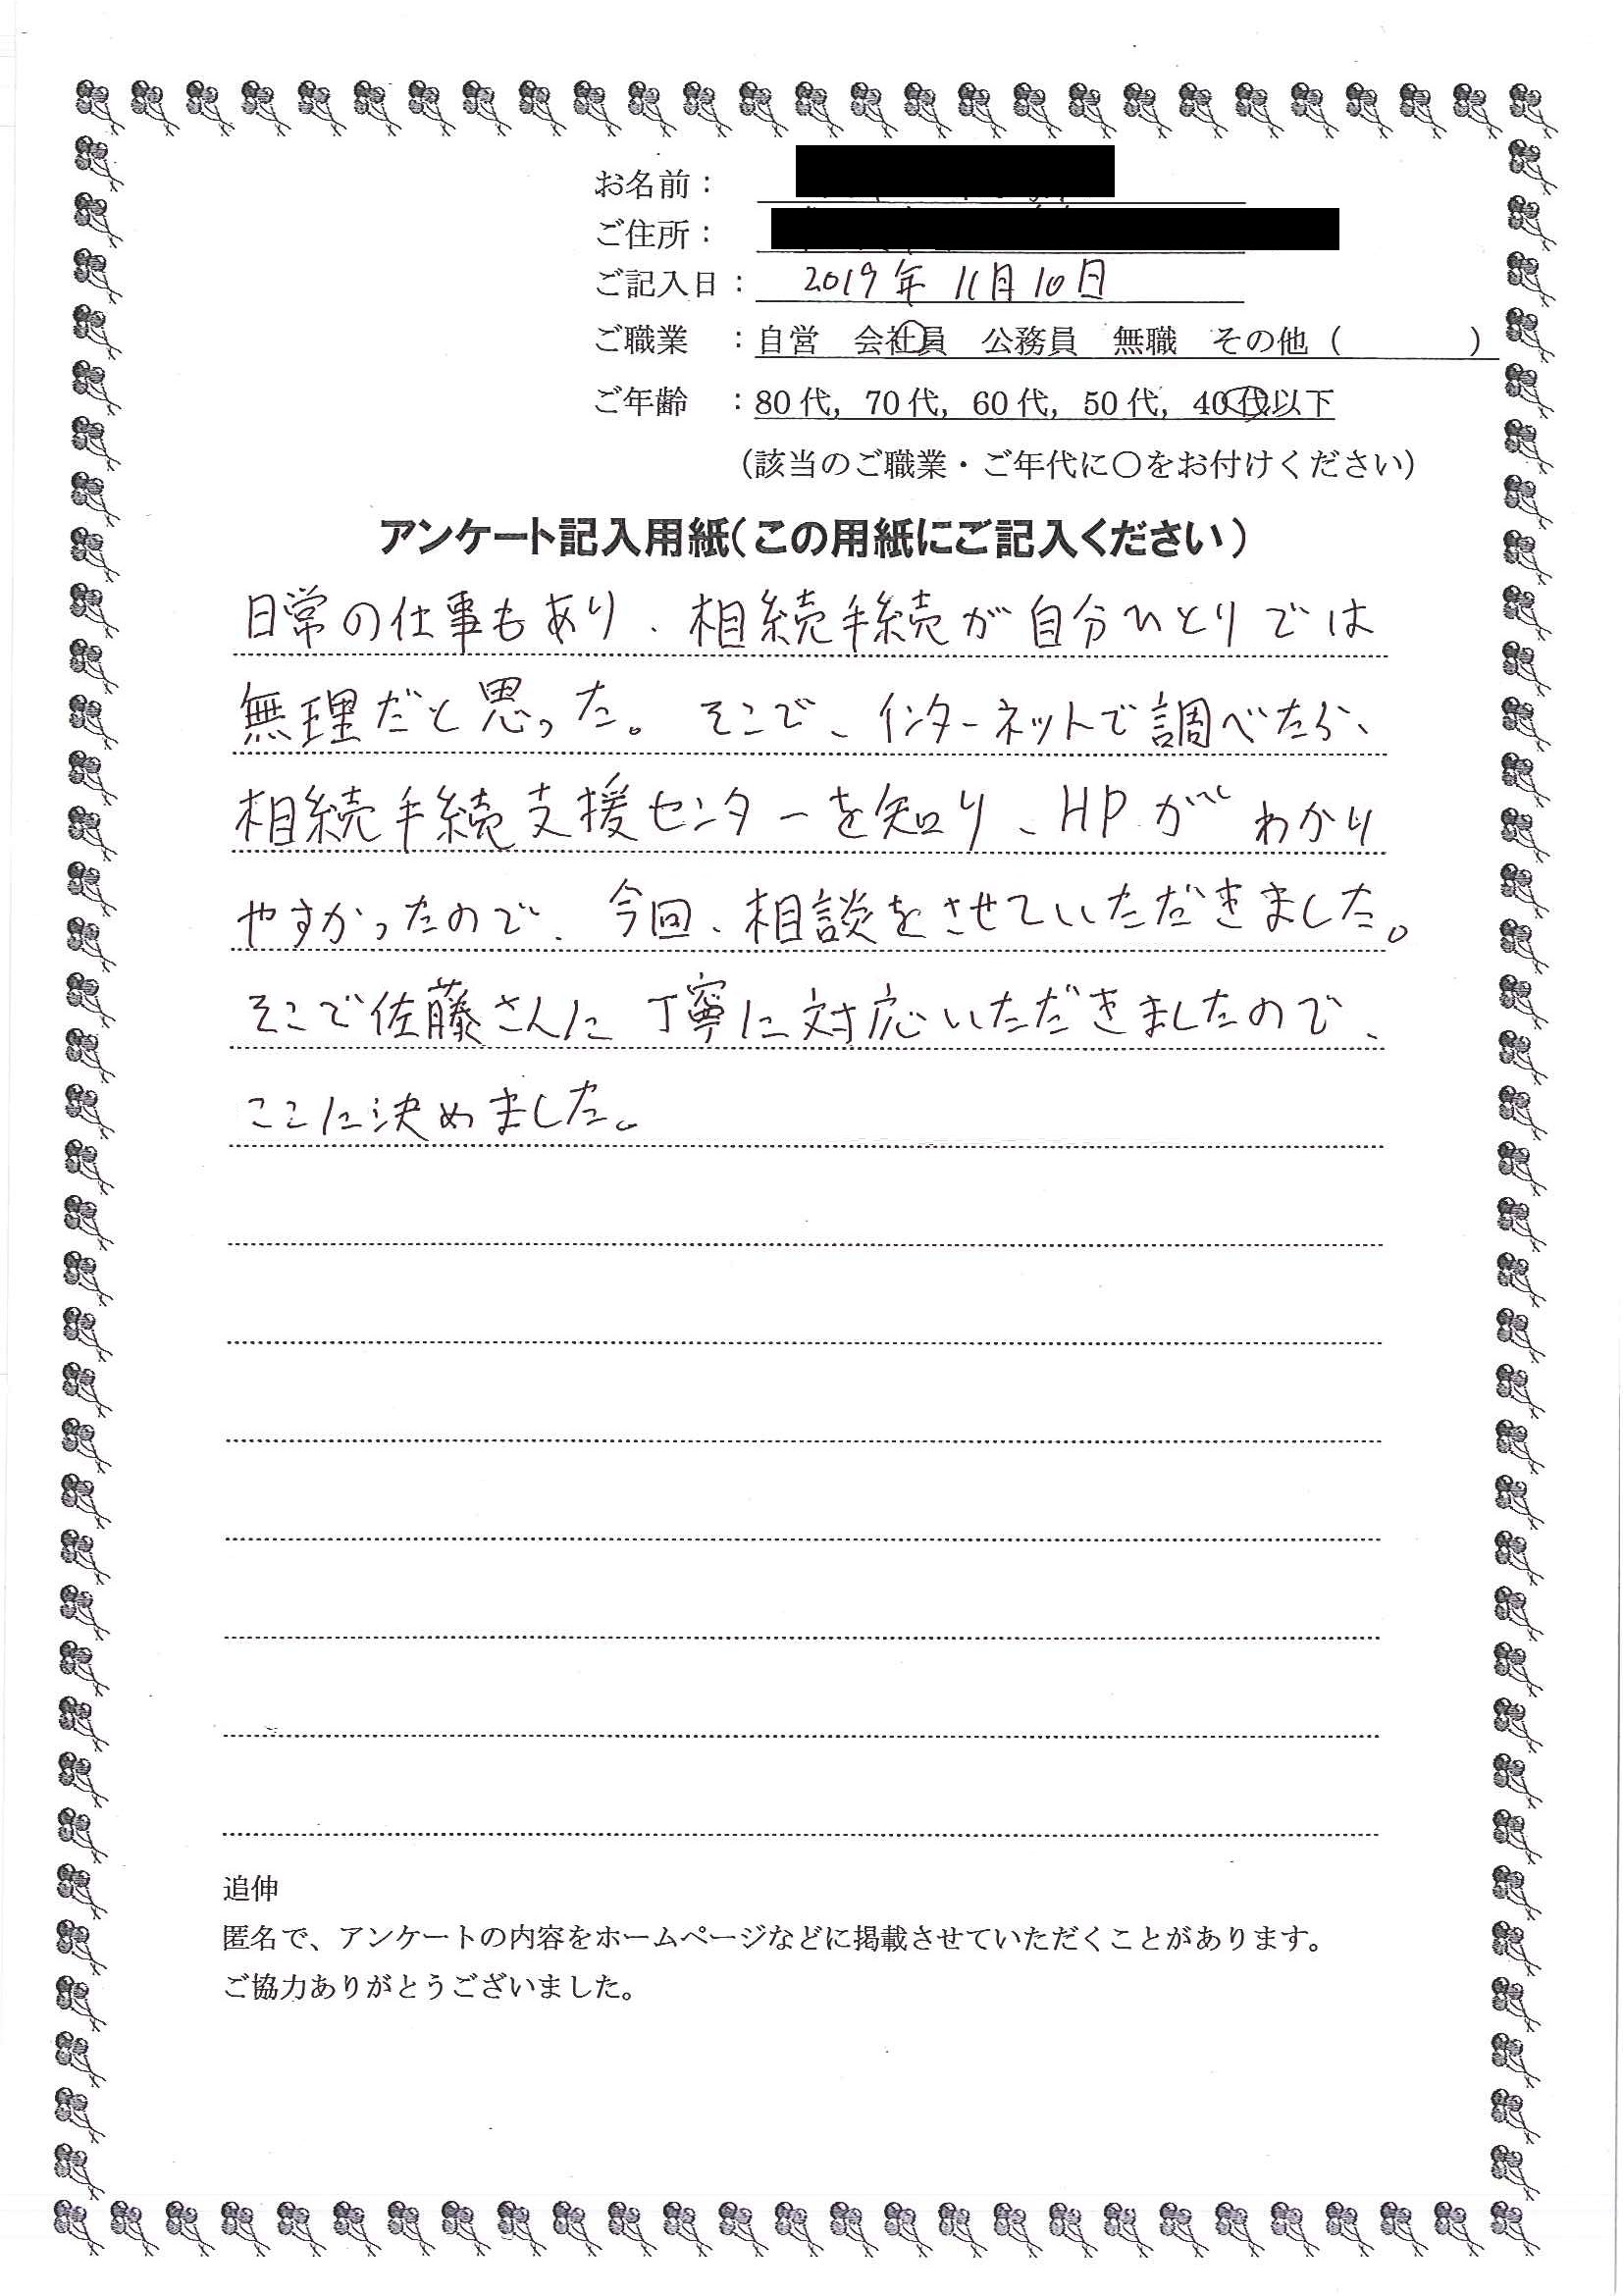 お名前：
ご住所：
ご記入日： 2019年 11月10日
ご職業 ：自営 会社員 公務員 無職 その他（ ）
ご年齢 ：80代，70代，60代，50代，40代以下
（該当のご職業・ご年代に〇をお付けください）
アンケート記入用紙（この用紙にご記入ください）
日常の仕事もあり、相続手続が自分ひとりでは
無理だと思った。そこで、インターネットで調べたら、
相続手続支援センターを知り、HPがわかり
やすかったので、今回、相談をさせていただきました。
そこで佐藤さんに丁寧に対応いただきましたので、
ここに決めました。
追伸
匿名で、アンケートの内容をホームページなどに掲載させていただくことがあります。
ご協力ありがとうございました。